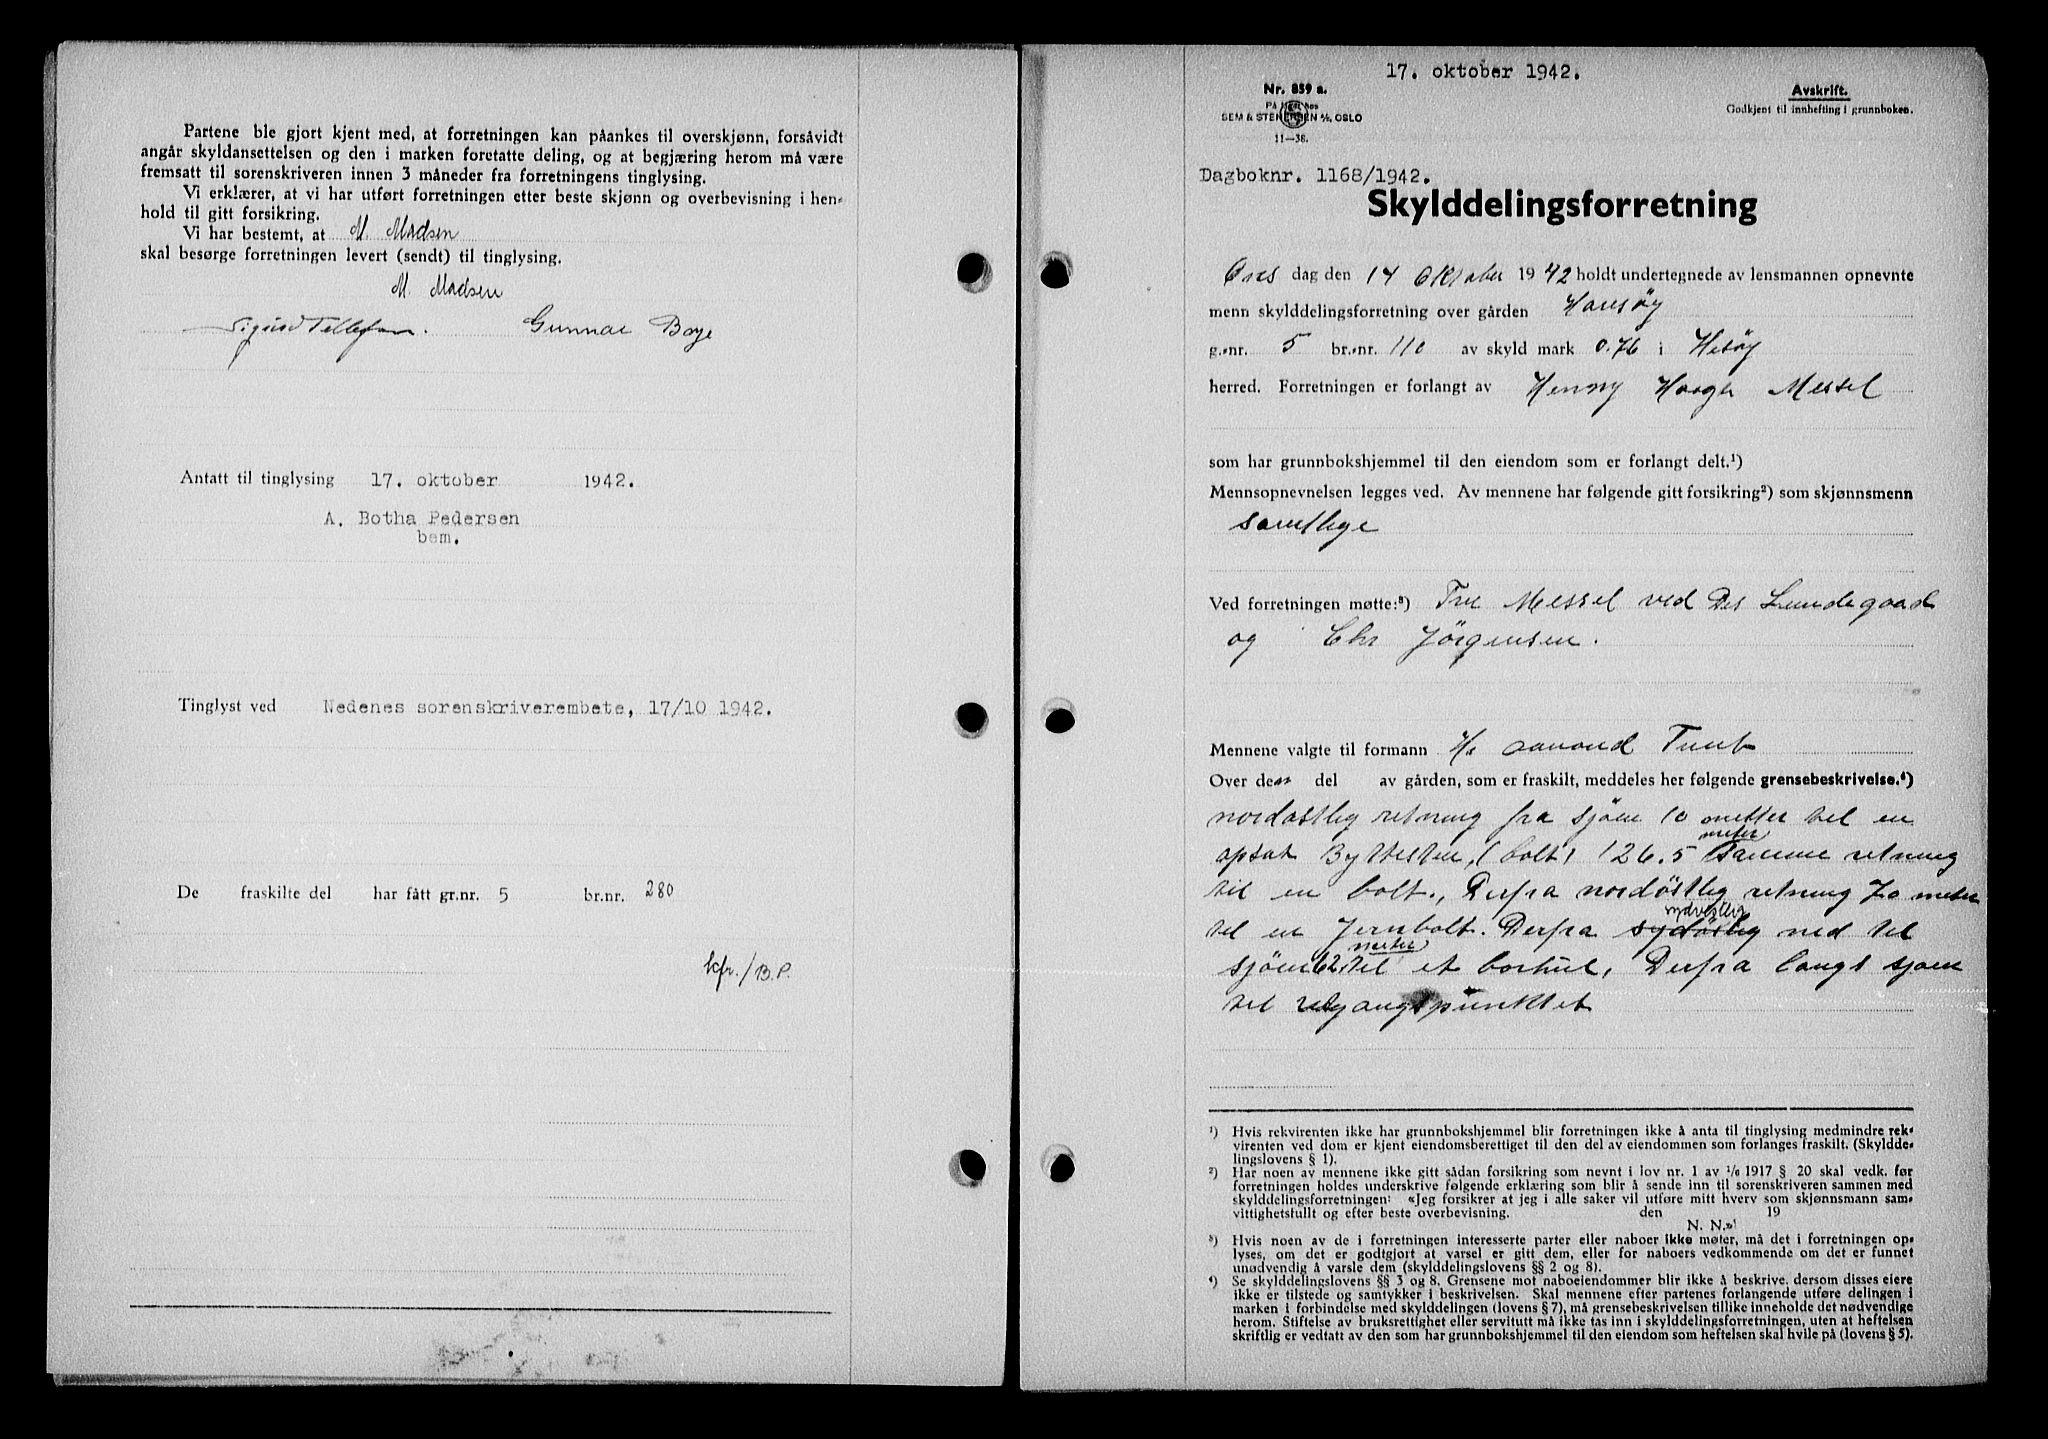 Partene ble gjort kjent med, at forretningen kan påankes til overskjønn, forsåvidt
angår skyldansettelsen og den i marken foretatte deling, og at begjæring herom må være
fremsatt til sorenskriveren innen 3 måneder fra forretningens tinglysing.
Vi erklærer, at vi har utført forretningen etter beste skjønn og overbevisning i hen-
hold til gitt forsikring.
Vi har bestemt, at M. Madsen
skal besørge forretningen levert (sendt) til tinglysing.
M. Madsen
Sigurd Tellefsen. Gunnar Boye
Antatt til tinglysing 17. oktober 1942.
A. Botha Pedersen
bem.
Tinglyst ved Nedenes sorenskriverembete, 17/10 1942.
De fraskilte del har fått gr.nr. 5 br.nr. 280
kfr./B.P.
17. oktober 1942.
Nr. 859 a.
SEM & STENERSEN A/S, OSLO
11-38.
Avskrift.
Godkjent til innhefting i grunnboken.
Dagboknr. 1168/1942.
Skylddelingsforretning
Ons dag den 14 Oktober 1942 holdt undertegnede av lensmannen opnevnte
menn skylddelingsforretning over gården
g.-nr. 5 br.-nr. 110 av skyld mark 0.76 i Hisöy
herred. Forretningen er forlangt av Henny Messel
som har grunnbokshjemmel til den eiendom som er forlangt delt.¹)
Mennsopnevnelsen legges ved. Av mennene har følgende gitt forsikring²) som skjønnsmenn
samtlige
Ved forretningen møtte:³) Messel ved Lundegaard
og Chr Jörgensen.
Mennene valgte til formann
Over den del av gården, som er fraskilt, meddeles her følgende grensebeskrivelse.⁴)
nordostlig retning fra sjöen 10 metter til en
opsat Bytesten, (bolt) 126.5 meter samme retning
til en bolt., Derfra nordöstlig retning 70 meter
til en Jernbolt. Derfra sydöstlig sydvestlig ned til
sjöen 62 meter til et borhul, Derfra langs sjøen
til utgangspunktet
¹) Hvis rekvirenten ikke har grunnbokshjemmel blir forretningen ikke å anta til tinglysing medmindre rek-
virenten ved dom er kjent eiendomsberettiget til den del av eiendommen som forlanges fraskilt. (Skyldde-
lingslovens § 1).
²) Har noen av mennene ikke gitt sådan forsikring som nevnt i lov nr. 1 av 1/6 1917 § 20 skal vedk. før
forretningen holdes underskrive følgende erklæring som blir å sende inn til sorenskriveren sammen med
skylddelingsforretningen: «Jeg forsikrer at jeg i alle saker vil utføre mitt hverv som skjønnsmann sam-
vittighetsfullt og efter beste overbevisning. den 19
N. N.»
³) Hvis noen av de i forretningen interesserte parter eller naboer ikke møter, må det i forretningen op-
lyses, om det er godtgjort at varsel er gitt dem, eller for naboers vedkommende om det er funnet
unødvendig å varsle dem (skylddelingslovens §§ 2 og 8).
⁴) Se skylddelingslovens §§ 3 og 8. Grensene mot naboeiendommer blir ikke å beskrive, dersom disses eiere
ikke er tilstede og samtykker i beskrivelsen. Skal mennene efter partenes forlangende utføre delingen i
marken i forbindelse med skylddelingen (lovens § 7), må grensebeskrivelsen tillike inneholde det nødvendige
herom. Stiftelse av bruksrettighet eller servitutt må ikke tas inn i skylddelingsforretningen, uten at heftelsen
skriftlig er vedtatt av den som har grunnbokshjemmel til den eiendom som heftelsen skal hvile på (lovens § 5).